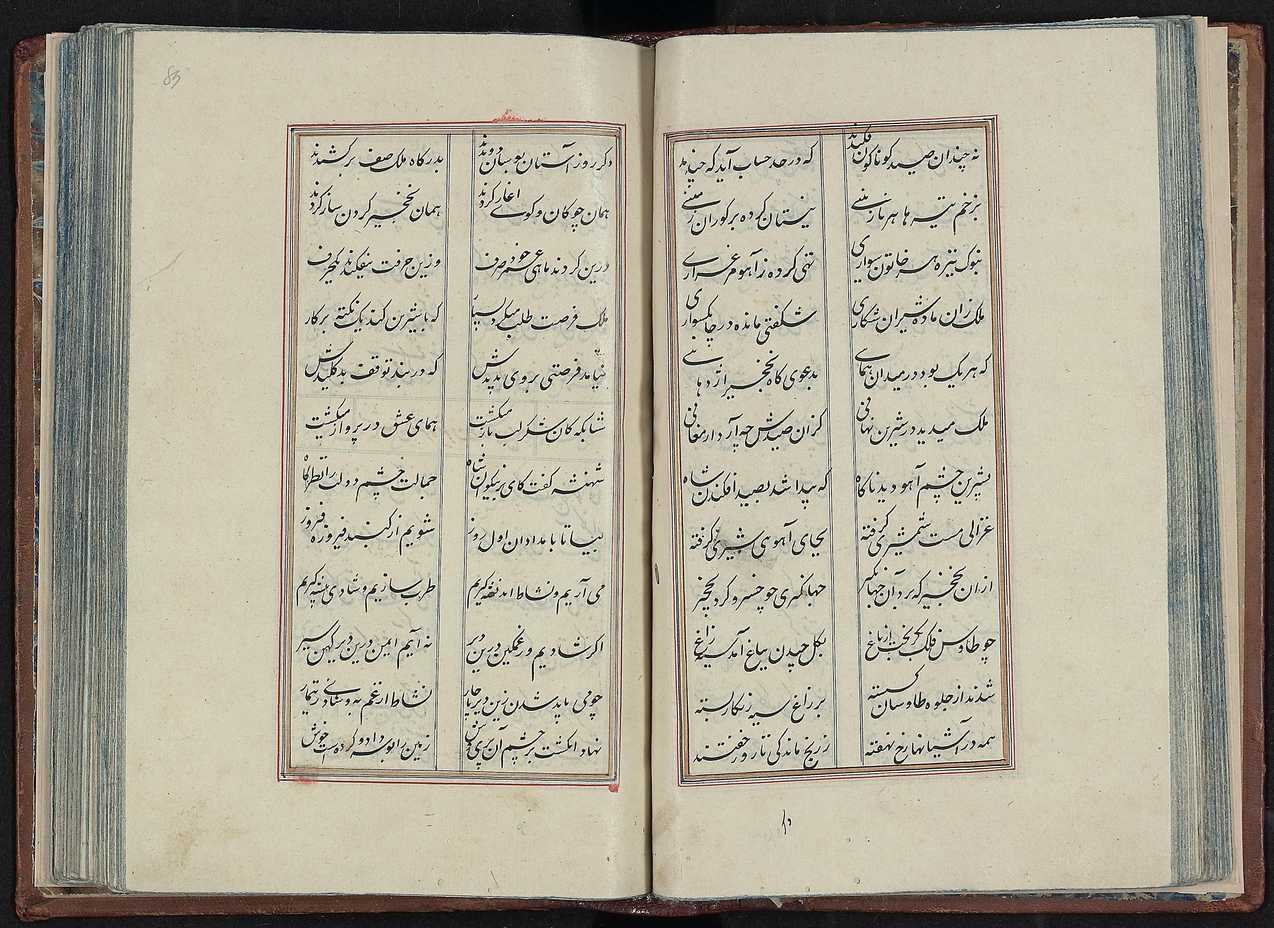 نه چندان صید گوناگون فکندند که در حد حساب آید که چندند
بزخم نیزه ها هر نازنینی نیستان کرده بر گوران زمینی
بنوک نیزه هر خاتون سواری تهی کرده ز آهو مرغزاری
ملک زان ماده شیران شکاری شگفتی مانده در چابکسواری
که هر یک بود در میدان همائی بدعوی گاه نخجیر اژدهائی
ملک میدید در شیرین نهانی کزان صیدش چه آرد ارمغانی
بشیرین چشم آهو دید ناگاه که پیدا شد بصید افکندن شاه
غزالی مست شمشیری گرفته بجای آهوی شیری گرفته
ازان نخجیر که برد آن جهانگیر جهانگیری چو خسرو کرد نخجیر
چو طاوس فلک بگریخت از باغ بگل چیدن بباغ آمد سیه زاغ
شدند از جلوه طاوسان گسسته بر زاغ سیه زنگار بسته
همه در آشیانها رخ نهفته ز رنج ماندگی تا روز خفتند
دگر روز آستان بوسان دویدند بدرگاه ملک صف بر کشیدند
همان چوگان و گوی آغاز کردند همان نخجیر کردن ساز کردند
درین کردند ماهی عمر خود صرف وزین حرفت نیفکندند یکحرف
ملک فرصت طلب میکرد بسیار که با شیرین کند یک نکته بر کار
نیامد فرصتی بر وی پدیدش که در بند توقف بد کلیدش
شبانگه کان شکر لب باز میگشت همای عشق در پرواز میگشت
شهنشه گفت کای بر نیکوان شاه جمالت چشم دولت را نظرگاه
بیا تا بامدادان اول روز شویم از گنبد فیروزه فیروز
می آریم و نشاط اندیشه گیریم طرب سازیم و شادی پیشه گیریم
اگر شادیم و ر غمگین درین دیر نه آیم ایمن درین دیر کهن سیر
چو می باید شدن زین دیر ناچار نشاط از غم به و شادی ز تیمار
نهاد انگشت بر چشم آن پری وش زمین را بوسه داد و کرد دست خوش
83